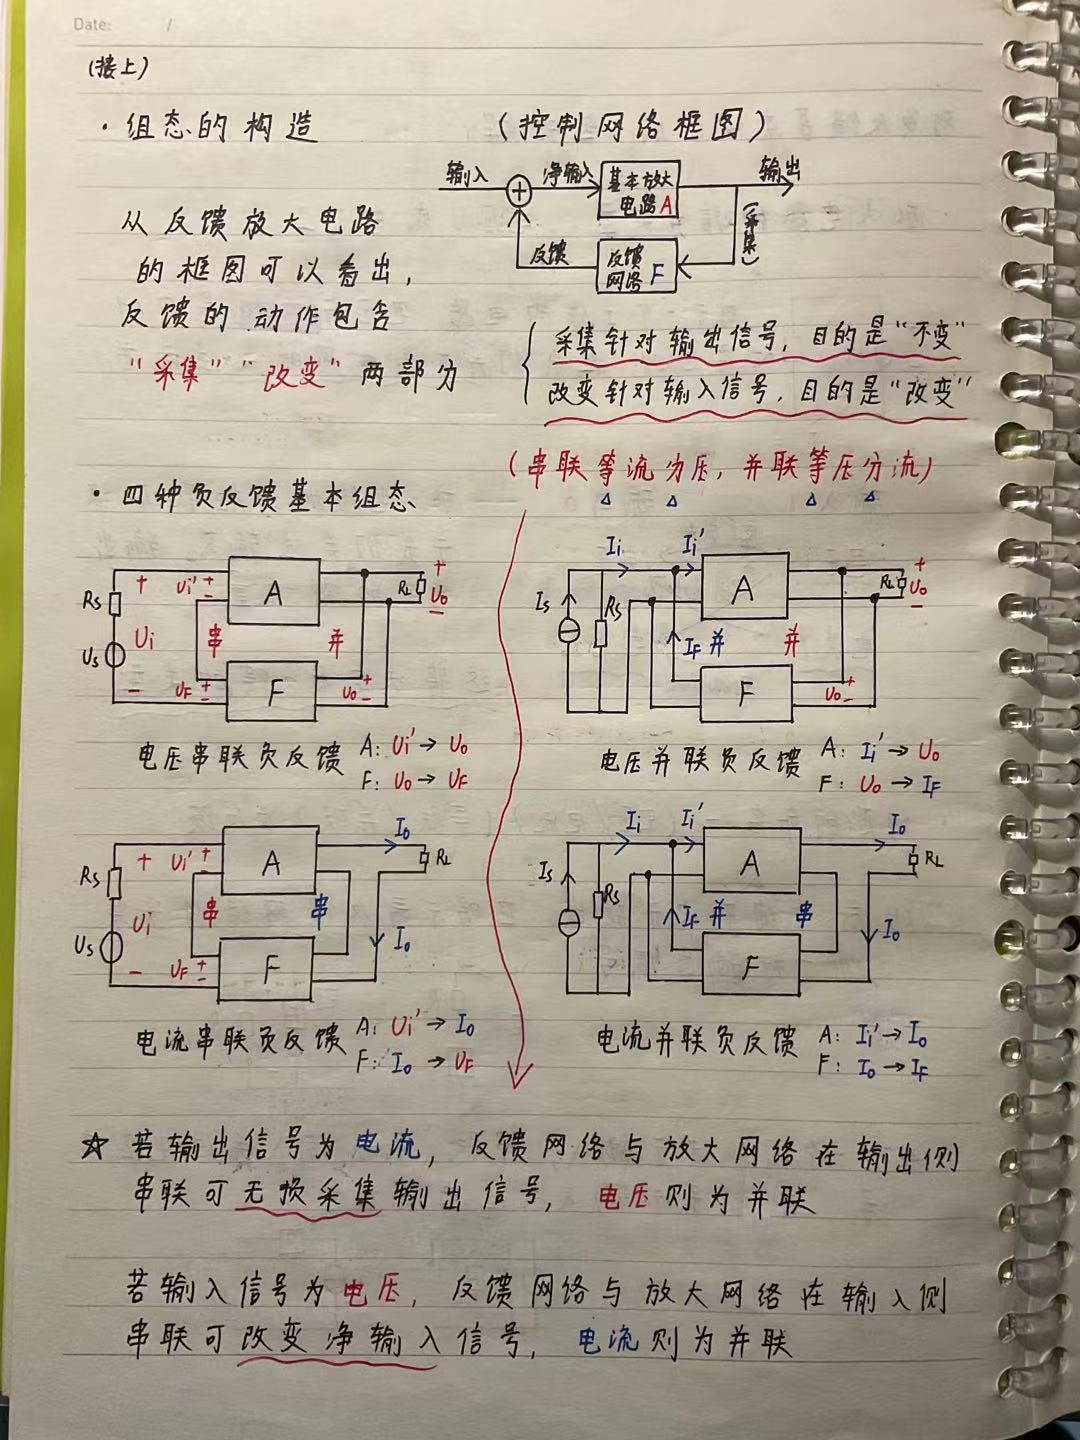 Date: /
(接上)
·组态的构造
(控制网络框图)
输入
净输入
基本放大
电路A
输出
(采集)
反馈
反馈
网络F
从反馈放大电路
的框图可以看出,
反馈的动作包含
"采集""改变"两部分
采集针对输出信号,目的是"不变"
改变针对输入信号,目的是"改变"
(串联等流分压,并联等压分流)
·四种负反馈基本组态
Rs + Ui' + - A + RL Uo -
Us Ui 串 并
- UF + - F Uo + -
电压串联负反馈 A: Ui'→Uo
F: Uo→UF
Ii Ii' A + RL Uo -
Is Rs IF 并 并
F Uo + -
电压并联负反馈 A: Ii'→Uo
F: Uo→IF
Rs + Ui' + - A Io RL
Us Ui 串 串 Io
- UF + - F
电流串联负反馈 A: Ui'→Io
F: Io→UF
Ii Ii' A Io RL
Is Rs IF 并 串 Io
F
电流并联负反馈 A: Ii'→Io
F: Io→IF
☆ 若输出信号为电流,反馈网络与放大网络在输出侧
串联可无损采集输出信号,电压则为并联
若输入信号为电压,反馈网络与放大网络在输入侧
串联可改变净输入信号,电流则为并联